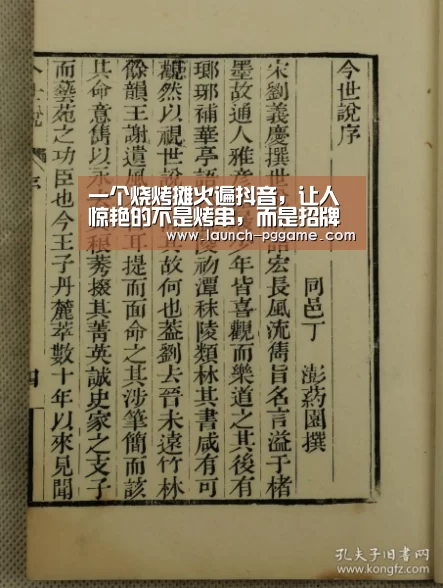 今世說序
同邑丁 澎葯園撰
宋劉義慶撰世 語宏長風流雋旨名言溢于楮
墨故通人雅彥 年皆喜觀而樂道之其後有
瑯琊補華亭語 初潭秣陵類林其書咸有可
觀然以視世說 故何也蓋劉去晉未遠竹林
餘韻王謝遺風 耳提而面命之其涉筆簡而該
其命意雋以永 莠掇其菁英誠史家之支子
而藝苑之功臣也今王子丹麓萃數十年以來見聞
今世說 序
一个烧烤摊火遍抖音，让人
惊艳的不是烤串，而是招牌
www.launch-pggame.com
孔夫子旧书网
kongfz.com